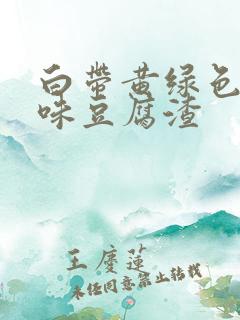 白带黄绿色
味豆腐渣
王庆莲
未经同意禁止转载